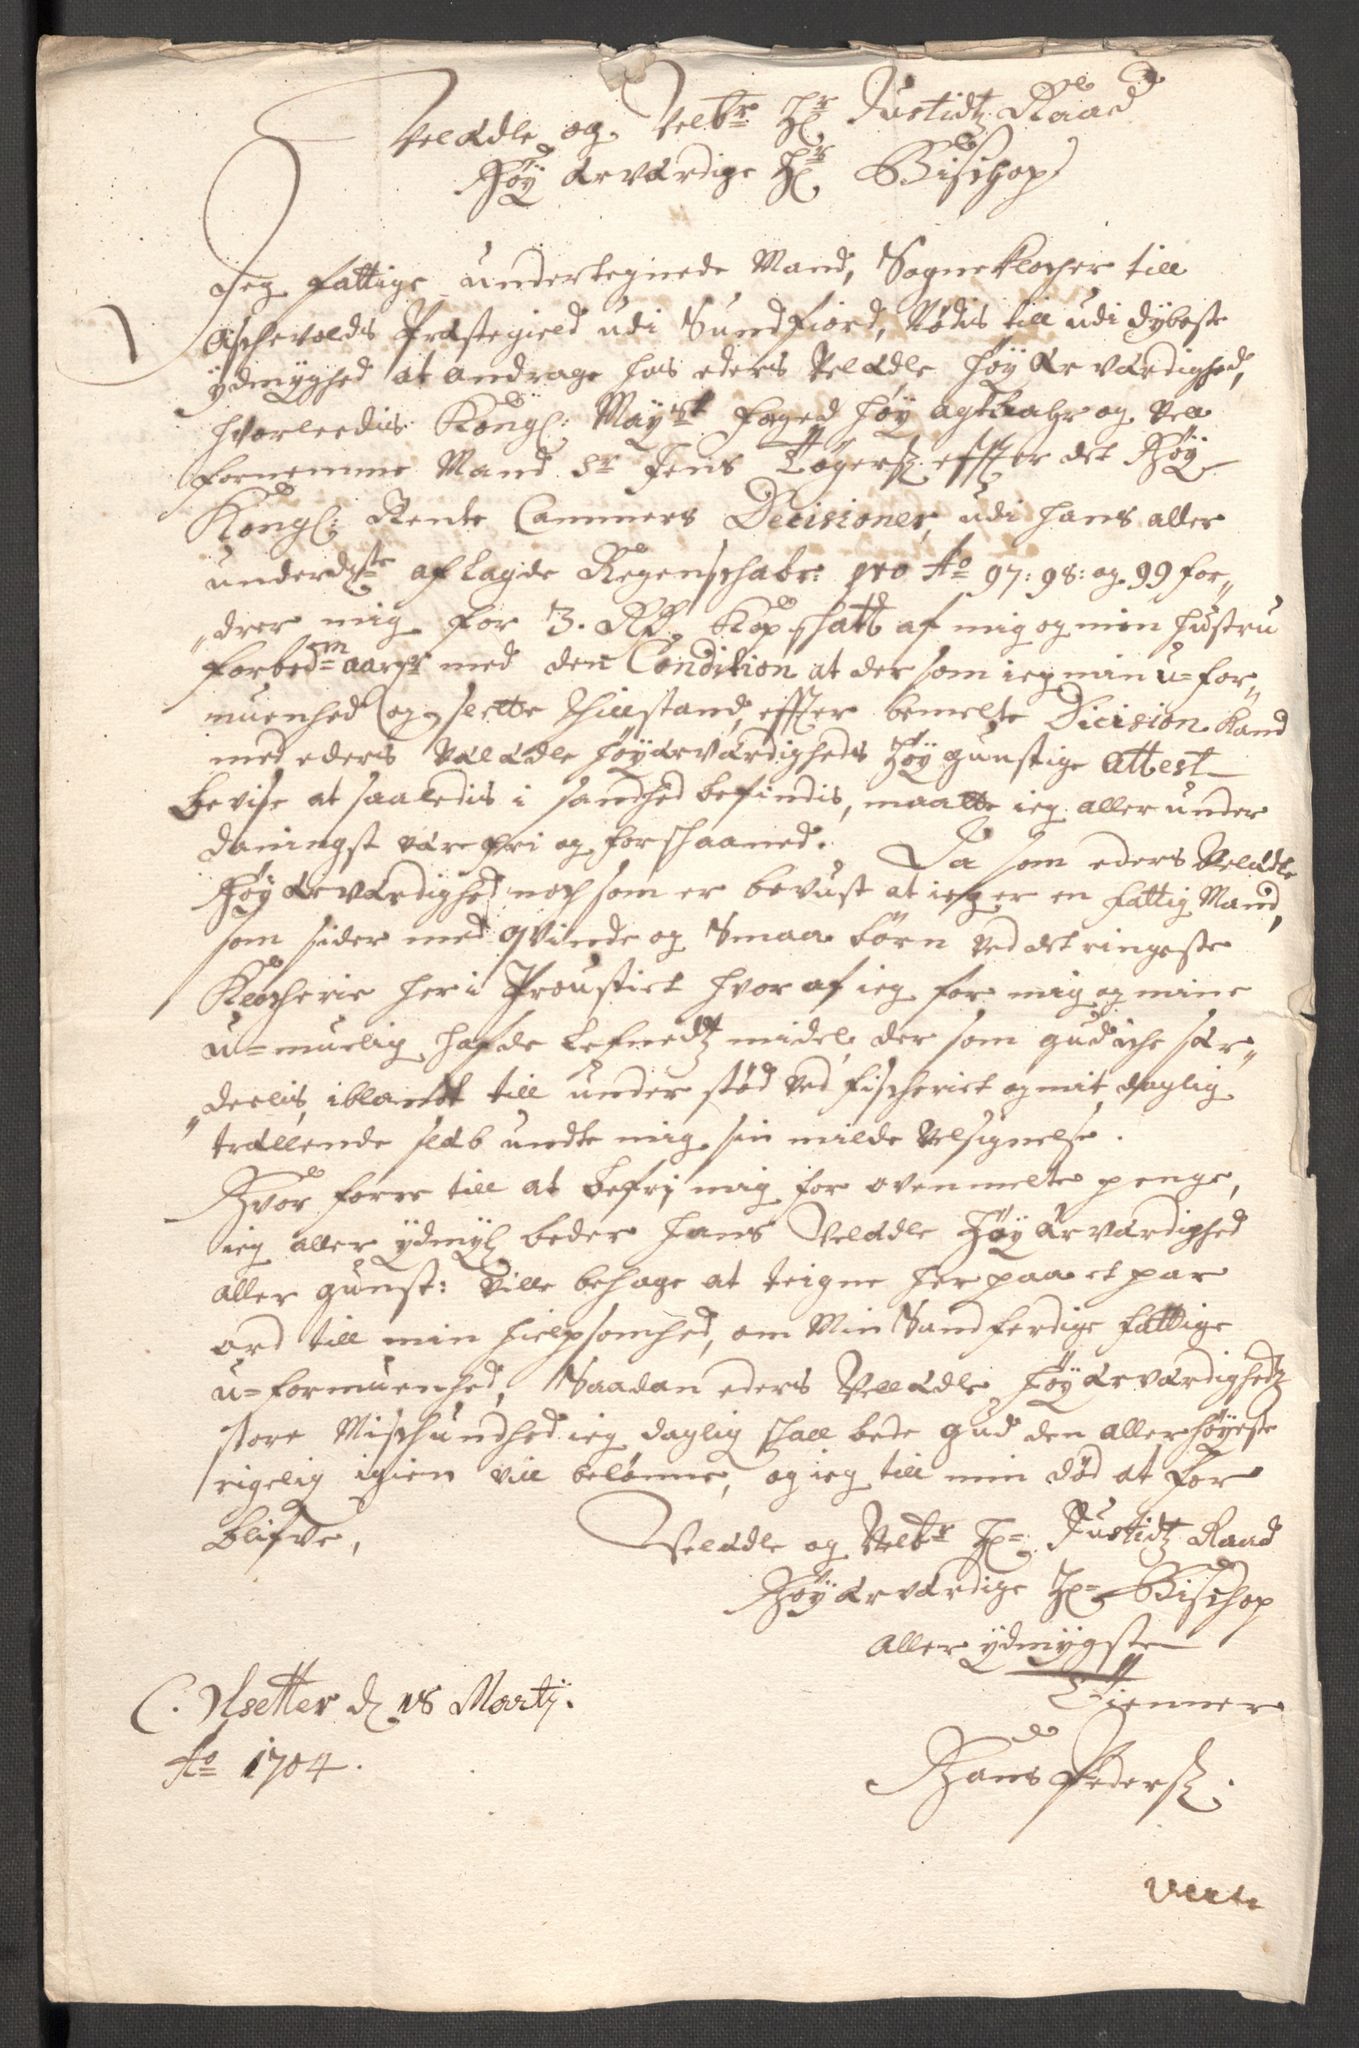 Velædle og Velb:r H:r Justidtz Raad
Höy ærværdige H:r Bischop
Jeg fattige undertegnede Mand, Sogneklocher till
Aschevolds Præstegield udi Sundfiord, Nödis till udi dybeste
ydmyghed at andrage hos eders Velædle Höyærværdighed,
hvorleedis Kongl: May:tt foged höy agtbahr og vel
fornemme Mand Sr Jens Tögers: effter det Höy
Kongl: Rente Cammers Decisioner, udi hans aller
underd:ste aflagde Regenschaber pro Ao 97: 98: og 99 for„
„drer mig for 3. Rd. Kopschatt af mig og min hustru
forbed:m aaringer med den Condition at der som ieg min u=for„
muenhed og slette thillstand, effter bemelte Dicision kand
med eders Velædle höyærværdigheds höygunstige Attest
bevise at saaledis i sandhed befindis, maatte ieg aller under
daningst være fri og forschaaned. Da som eders Velædle
Höyærværdighed noch som er bevust at ieg er en fattig Mand,
som sider med qvinde og Smaa börn ved det ringeste
Klocherie her i Proustiet hvor af ieg for mig og mine
u=muelig hafde lefnedtz midel, der som gud iche sær„
„deelis iblandt till under stöd ved fischeriet og mit daglig
trællende slæb undte mig sin milde velsignelse.
Hvor forre till at befri mig for ovenmelte penge,
ieg aller ydmyl beder hans Velædle Höyærværdighed
aller gunst: ville behage at teigne her paa et par
ord till min hielpsomhed, om Min Sandferdige fattige
u=formuenhed, Saadan eders Vellædle höyærværdighedtz
store Mischundhed ieg daglig schall bede gud den allerhöyeste
rigelig igien vill belönne, og ieg till min död at for
blifve,
Velædle og Velb:r H:r Justidtz Raad
Höyærværdige H:r Bischop
Aller ydmygste
Tienner
Hans Peders:
C. Alsetter d 18 Martj.
Ao 1704.
Verte